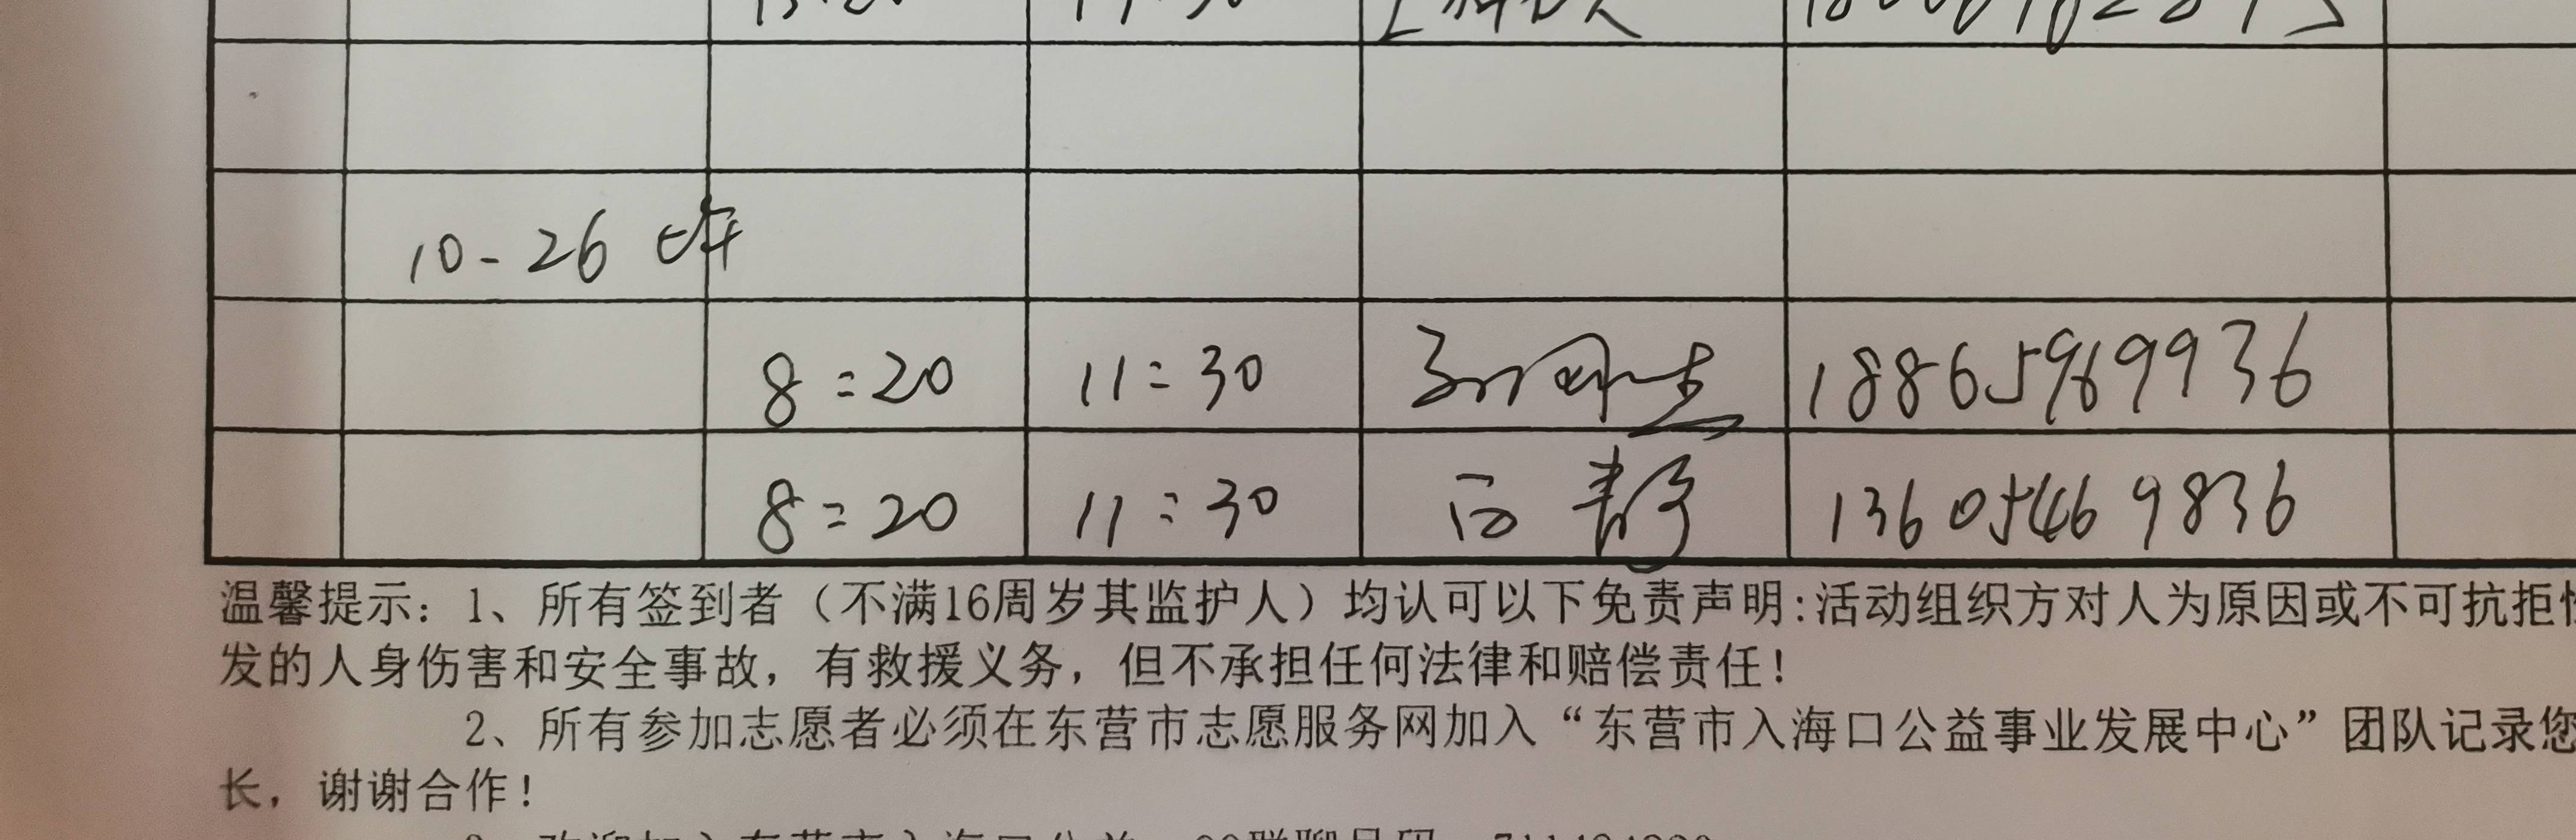 10-26 上午
8:20 11:30 18865969936
8:20 11:30 白静 13605469836
温馨提示：1、所有签到者（不满16周岁其监护人）均认可以下免责声明:活动组织方对人为原因或不可抗拒
发的人身伤害和安全事故，有救援义务，但不承担任何法律和赔偿责任！
2、所有参加志愿者必须在东营市志愿服务网加入“东营市入海口公益事业发展中心”团队记录您
长，谢谢合作！